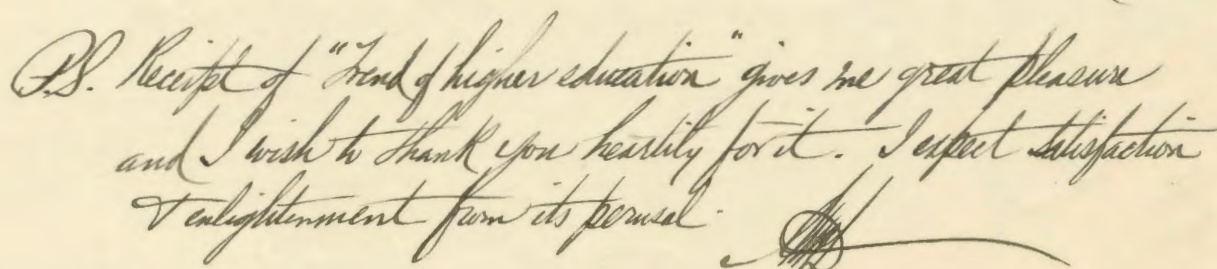 P.S. Receipt of "Trend of higher education" gives me great pleasure
and I wish to thank you heartily for it. I expect satisfaction
& enlightenment from its perusal.